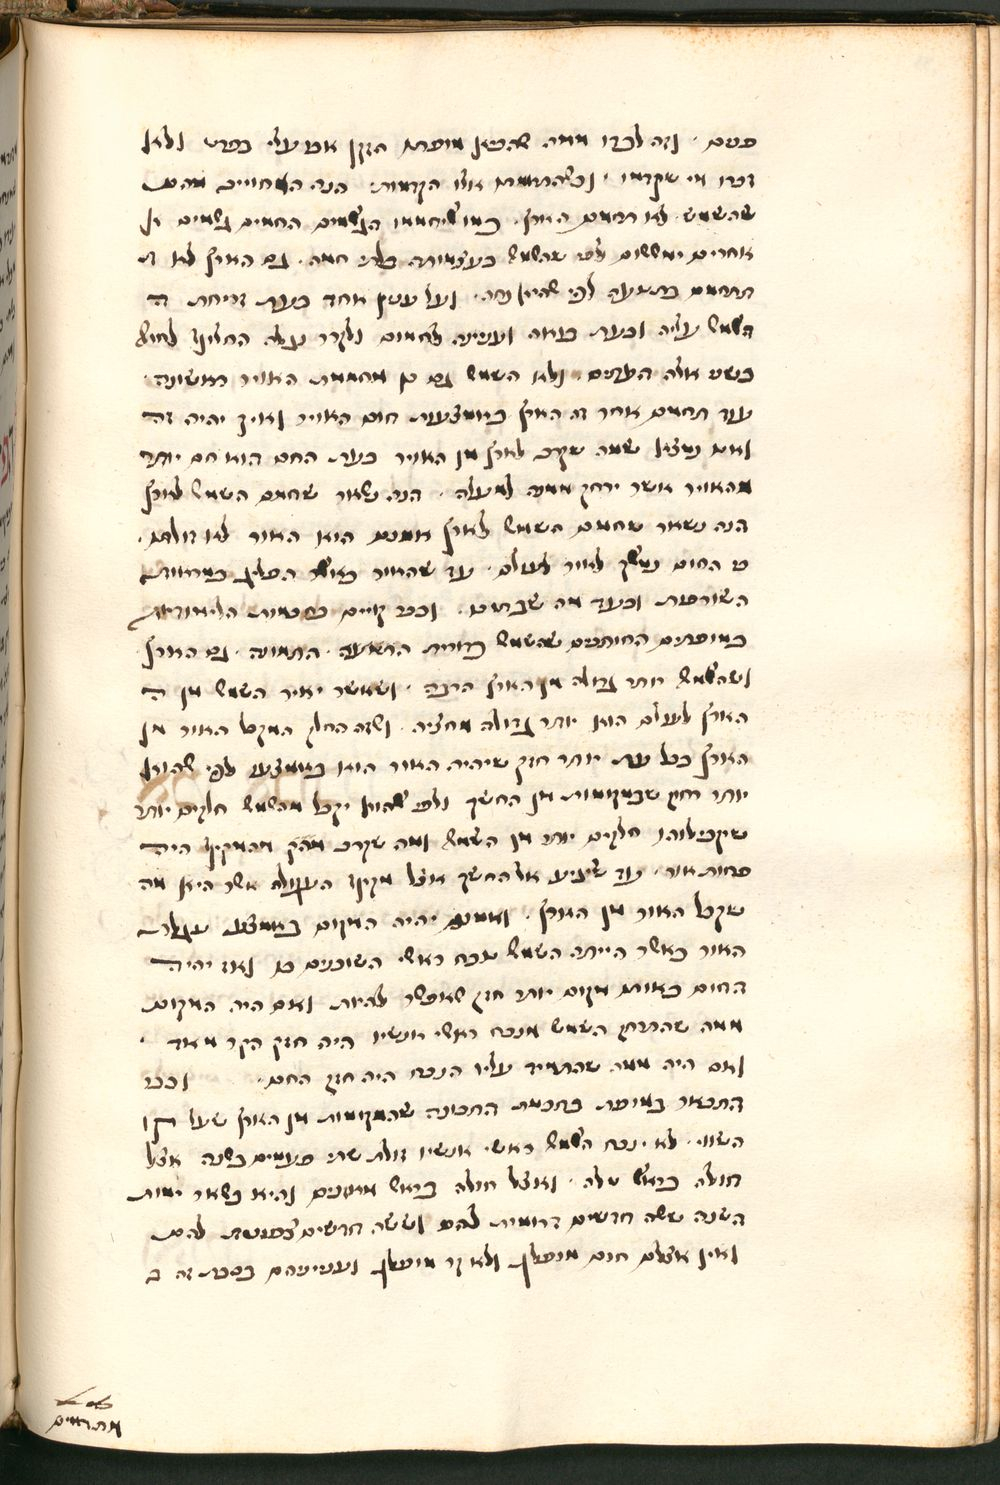 סתם · וזה לבדו ממה שהביאו מופת הזקן אבו עלי בפרט ולא
זכרו מי שקדמו · וכשהתאמתו אלו הקדמות · הנה המחוייב מהם
שהשמש לא תחמם הארץ · כמו שיחממו הגשמים החמים גשמים
אחרים ימששום לפי שהשמש בעצמותה בלתי חמה · גם הארץ לא ת
תתחמם בתנועה לפי שהיא נחה · ועל ענין אחד בעת זריחת ה
השמש עליה ובעת בואה ועניינה לחמום ולקור נגלה החלוף לחוש
בשני אלה העתים · ולא השמש גם כן מחממת האויר ראשונה ·
עוד תחמם אחר זה הארץ באמצעות חום האויר ואיך יהיה זה
ואנו נמצא שמה שקרב לארץ מן האויר בעת החם הוא חם יותר
מהאויר אשר ירחק ממנה למעלה · הנה נשאר שחמם השמש לארץ
הנה נשאר שחמם השמש לארץ אמנם הוא האור לא זולתו ·
כי החום נמשך לאור לעולם · עד שהאור כאשר הפליג במראות
השורפות ובער מה שכנגדם · וכבר קויים בחכמות הלימודיות
במופתים החותכים שהשמש כדורית התמונה · גם הארץ
ושהשמש יותר גדולה מן הארץ הרבה · ושאשר יאיר השמש מן ה
הארץ לעולם הוא יותר גדולה מחציה · ושזה החלק המקבל האור מן
הארץ בכל עת יותר חזק שיהיה האור הוא באמצעו לפי שהוא
יותר רחק שבמקומות מן החשך ולפי שהוא יקבל מהשמש חלקים יותר
שיקבילוהו חלקים יותר מן השמש ומה שקרב מהק מהמקיף היה
פחות אור · עד שיגיע אל החשך אצל מקיף העגולה אשר היא מה
שקבל האור מן הארץ · ואמנם יהיה המקום באמצע עגולת
האור כאשר הייתה השמש נוכח ראשי השוכנים בו ואז יהיה
החום באותו מקום יותר חזק שאפשר להיות ואם היה המקום
ממה שתרחק השמש מנכח ראשי אנשיו היה חזק הקר מאוד ·
ואם היה ממה שתתמיד עליו הנכח היה חזק החם · וכבר
התבאר במופת בחכמת התכונה שהמקומות מן הארץ שעל קו
השווי · לא ינכח השמש ראשי אנשיו זולת שתי פעמים בשנה אצל
חולה בראש טלה · ואצל חולה בראש מאזנים והיא בשאר ימות
השנה ששה חדשים דרומית להם וששה חדשים צפונית להם
ואין אצלם חום מופלג ולא קר מופלג וענייניהם בסבת זה ב
מתדמים